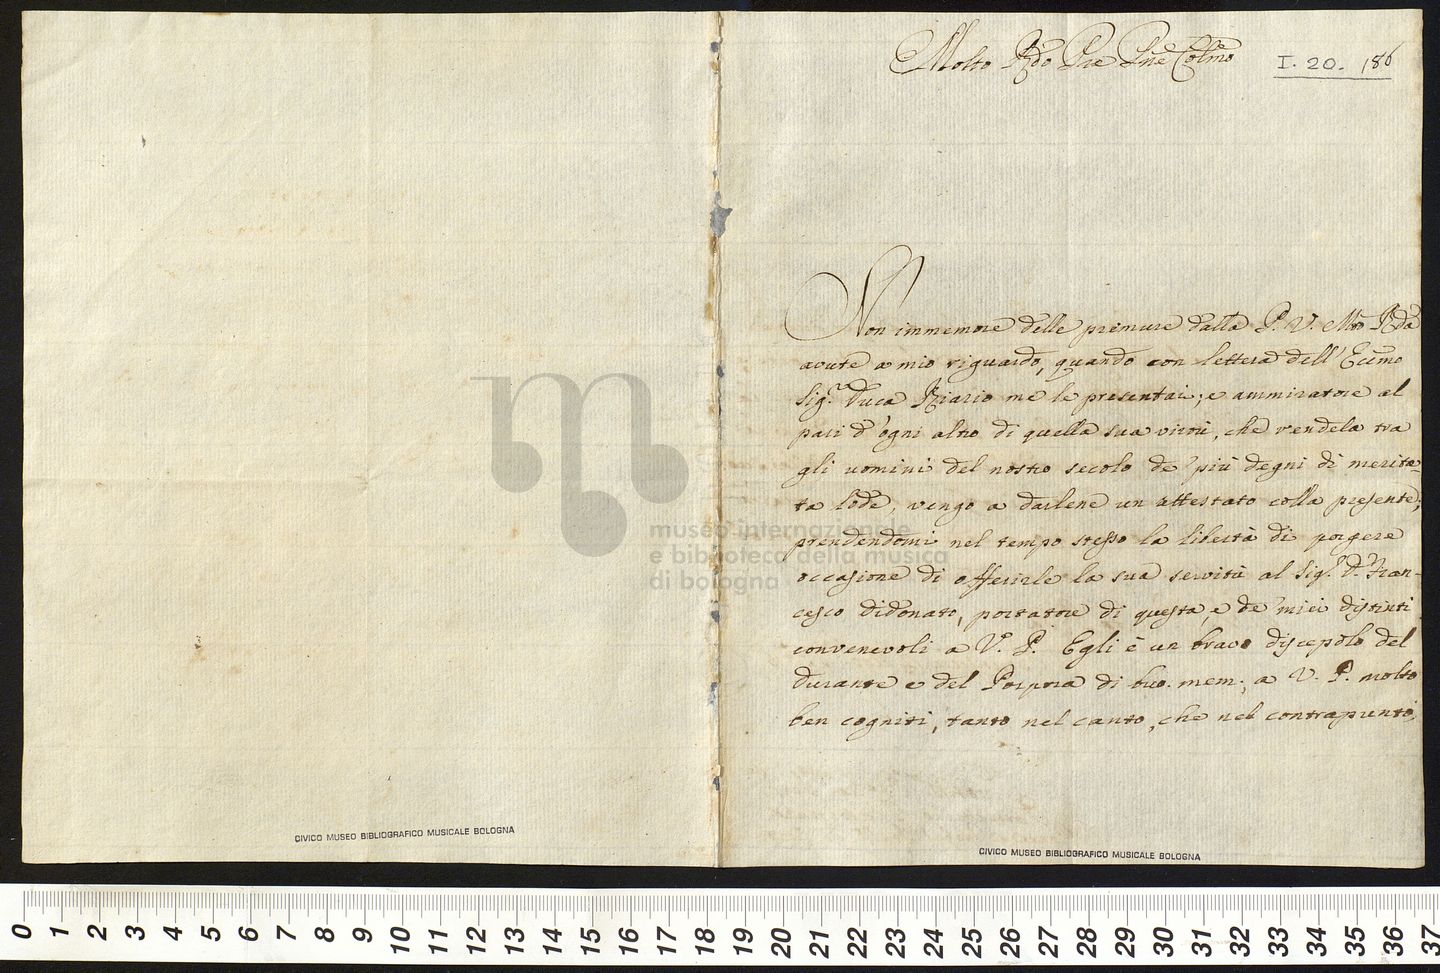 Molto Rdo Pre Pne Colmo
I. 20. 186
Non immemore delle premure dalla P. V. Mto Rda
avute a mio riguardo, quando con lettera dell'Eccmo
Sigr. Duca Riario me le presentai; e ammiratore al
pari d'ogni altro di quella sua virtù, che rendela tra
gli uomini del nostro secolo de' più degni di merita-
ta lode, vengo a darlene un attestato colla presente;
prendendomi nel tempo stesso la libertà di porgere
occasione di offerirle la sua servitù al Sigr. D. Fran-
cesco Didonato, portatore di questa, e de' miei distinti
convenevoli a V. P. Egli è un bravo discepolo del
Durante e del Porpora di buo. mem:, a V. P. molto
ben cogniti, tanto nel canto, che nel contrapunto,
museo internazionale
e biblioteca della musica
di bologna
CIVICO MUSEO BIBLIOGRAFICO MUSICALE BOLOGNA
CIVICO MUSEO BIBLIOGRAFICO MUSICALE BOLOGNA
0 1 2 3 4 5 6 7 8 9 10 11 12 13 14 15 16 17 18 19 20 21 22 23 24 25 26 27 28 29 30 31 32 33 34 35 36 37